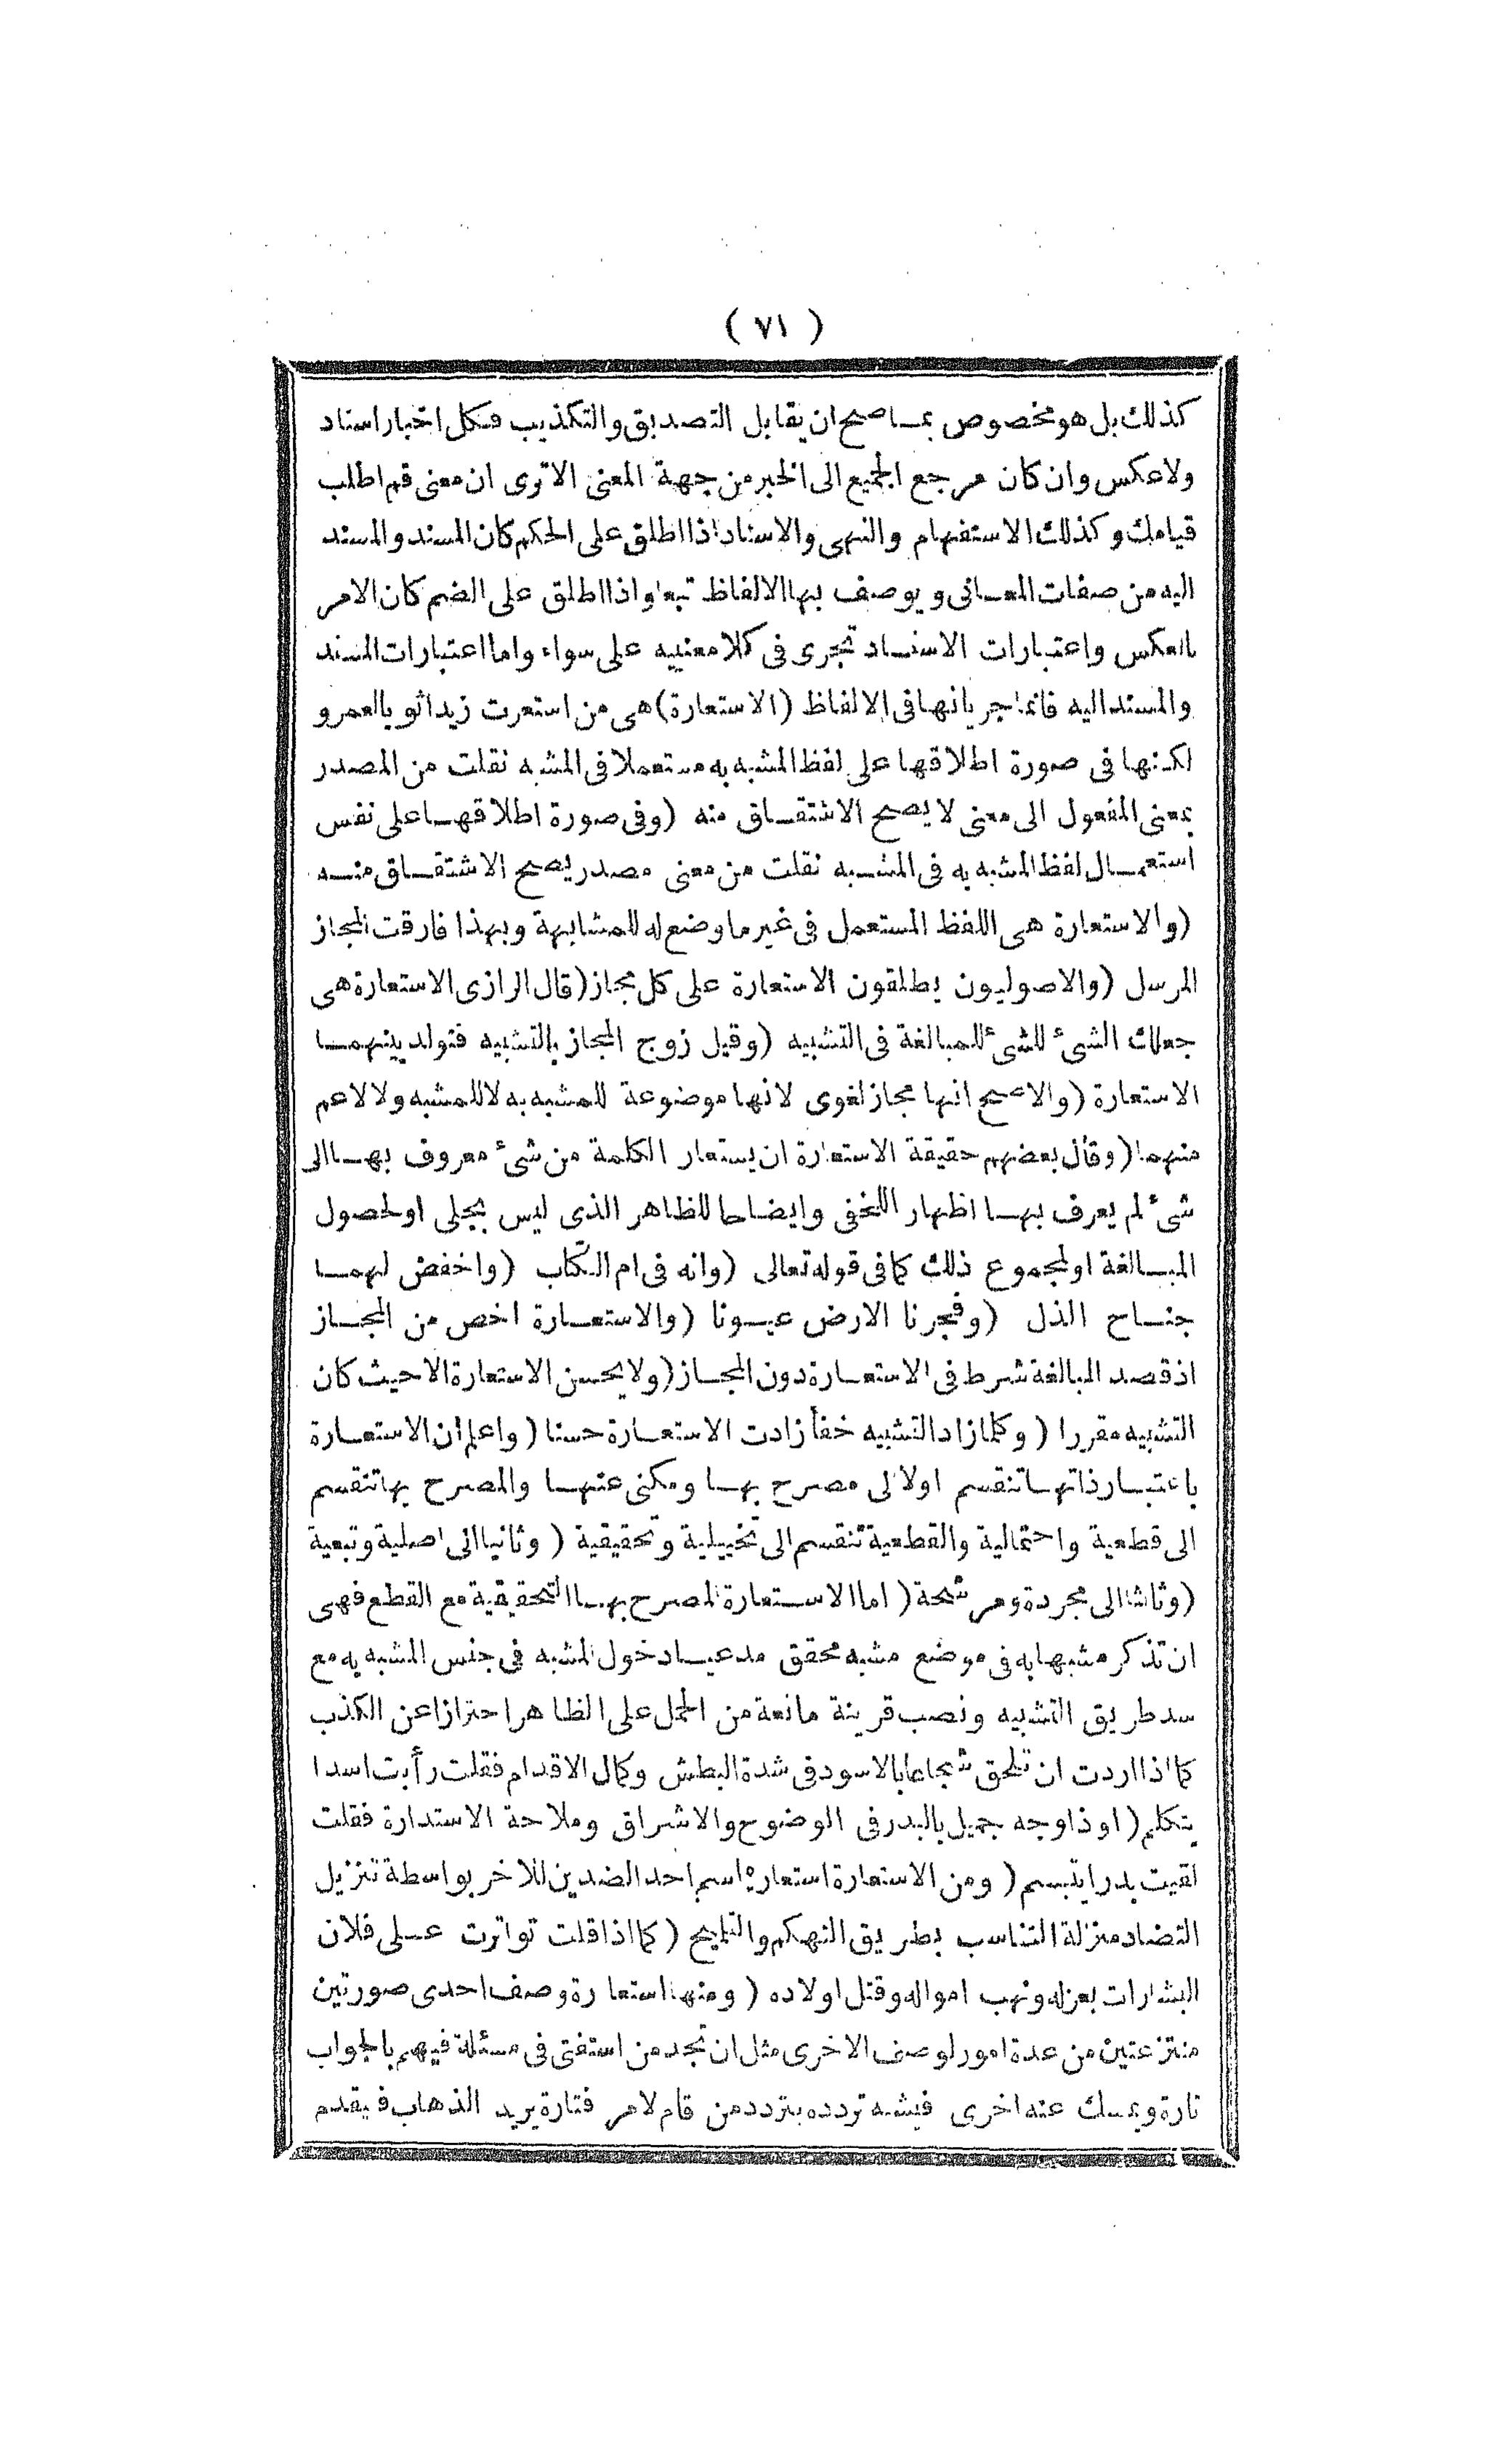 ( ٧١ )
كذلك بل هو مخصوص بما صح ان يقابل التصديق والتكذيب فكل اخبار اسناد
ولا عكس وان كان مرجع الجميع الى الخبر من جهة المعنى الا ترى ان معنى قم اطلب
قيامك وكذلك الاستفهام والنهى والاسناد اذا اطلق على الحكم كان المسند والمسند
اليه من صفات المعانى ويوصف بها الالفاظ تبعا واذا اطلق على الضم كان الامر
بالعكس واعتبارات الاسناد تجرى فى كلا معنييه على سواء واما اعتبارات المسند
والمسند اليه فانما جريانها فى الالفاظ (الاستعارة) هى من استعرت زيدا ثوبا لعمرو
لكنها فى صورة اطلاقها على لفظ المشبه به مستعملا فى المشبه نقلت من المصدر
بمعنى المفعول الى معنى لا يصح الاشتقاق منه (وفى صورة اطلاقها على نفس
استعمال لفظ المشبه به فى المشبه نقلت من معنى مصدر يصح الاشتقاق منه
(والاستعارة هى اللفظ المستعمل فى غير ما وضع له للمشابهة وبهذا فارقت المجاز
المرسل (والاصوليون يطلقون الاستعارة على كل مجاز (قال الرازى الاستعارة هى
جعلك الشئ للشئ للمبالغة فى التشبيه (وقيل زوج المجاز بالتشبيه فتولد بينهما
الاستعارة (والاصح انها مجاز لغوى لانها موضوعة للمشبه به لا للمشبه ولا لاعم
منهما (وقال بعضهم حقيقة الاستعارة ان يستعار الكلمة من شئ معروف بها الى
شئ لم يعرف بها اظهار اللخفى وايضاحا للظاهر الذى ليس بجلى او لحصول
المبالغة او لمجموع ذلك كما فى قوله تعالى (وانه فى ام الكتاب (واخفض لهما
جناح الذل (وفجرنا الارض عيونا (والاستعارة اخص من المجاز
اذ قصد المبالغة شرط فى الاستعارة دون المجاز (ولا يحسن الاستعارة الا حيث كان
التشبيه مقررا (وكلما زاد التشبيه خفأ زادت الاستعارة حسنا (واعلم ان الاستعارة
باعتبار ذاتها تنقسم اولا الى مصرح بها ومكنى عنها والمصرح بها تنقسم
الى قطعية واحتمالية والقطعية تنقسم الى تخييلية وتحقيقية (وثانيا الى اصلية وتبعية
(وثالثا الى مجردة ومرشحة (اما الاستعارة المصرح بها التحقيقية مع القطع فهى
ان تذكر مشبها به فى موضع مشبه محقق مدعيا دخول المشبه فى جنس المشبه به مع
سد طريق التشبيه ونصب قرينة مانعة من الحمل على الظاهر احترازا عن الكذب
كما اذا اردت ان تلحق شجاعا بالاسود فى شدة البطش وكمال الاقدام فقلت رأيت اسدا
يتكلم (او ذا وجه جميل بالبدر فى الوضوح والاشراق وملاحة الاستدارة فقلت
لقيت بدرا يتبسم (ومن الاستعارة استعارة اسم احد الضدين للاخر بواسطة تنزيل
التضاد منزلة التناسب بطريق التهكم والتمليح (كما اذا قلت تواترت على فلان
البشارات بعزله ونهب امواله وقتل اولاده (ومنها استعارة وصف احدى صورتين
منتزعتين من عدة امور لوصف الاخرى مثل ان تجد من استفتى فى مسئلة فيهم بالجواب
تارة ويمسك عنه اخرى فيشبه تردده بتردد من قام لامر فتارة يريد الذهاب فيقدم